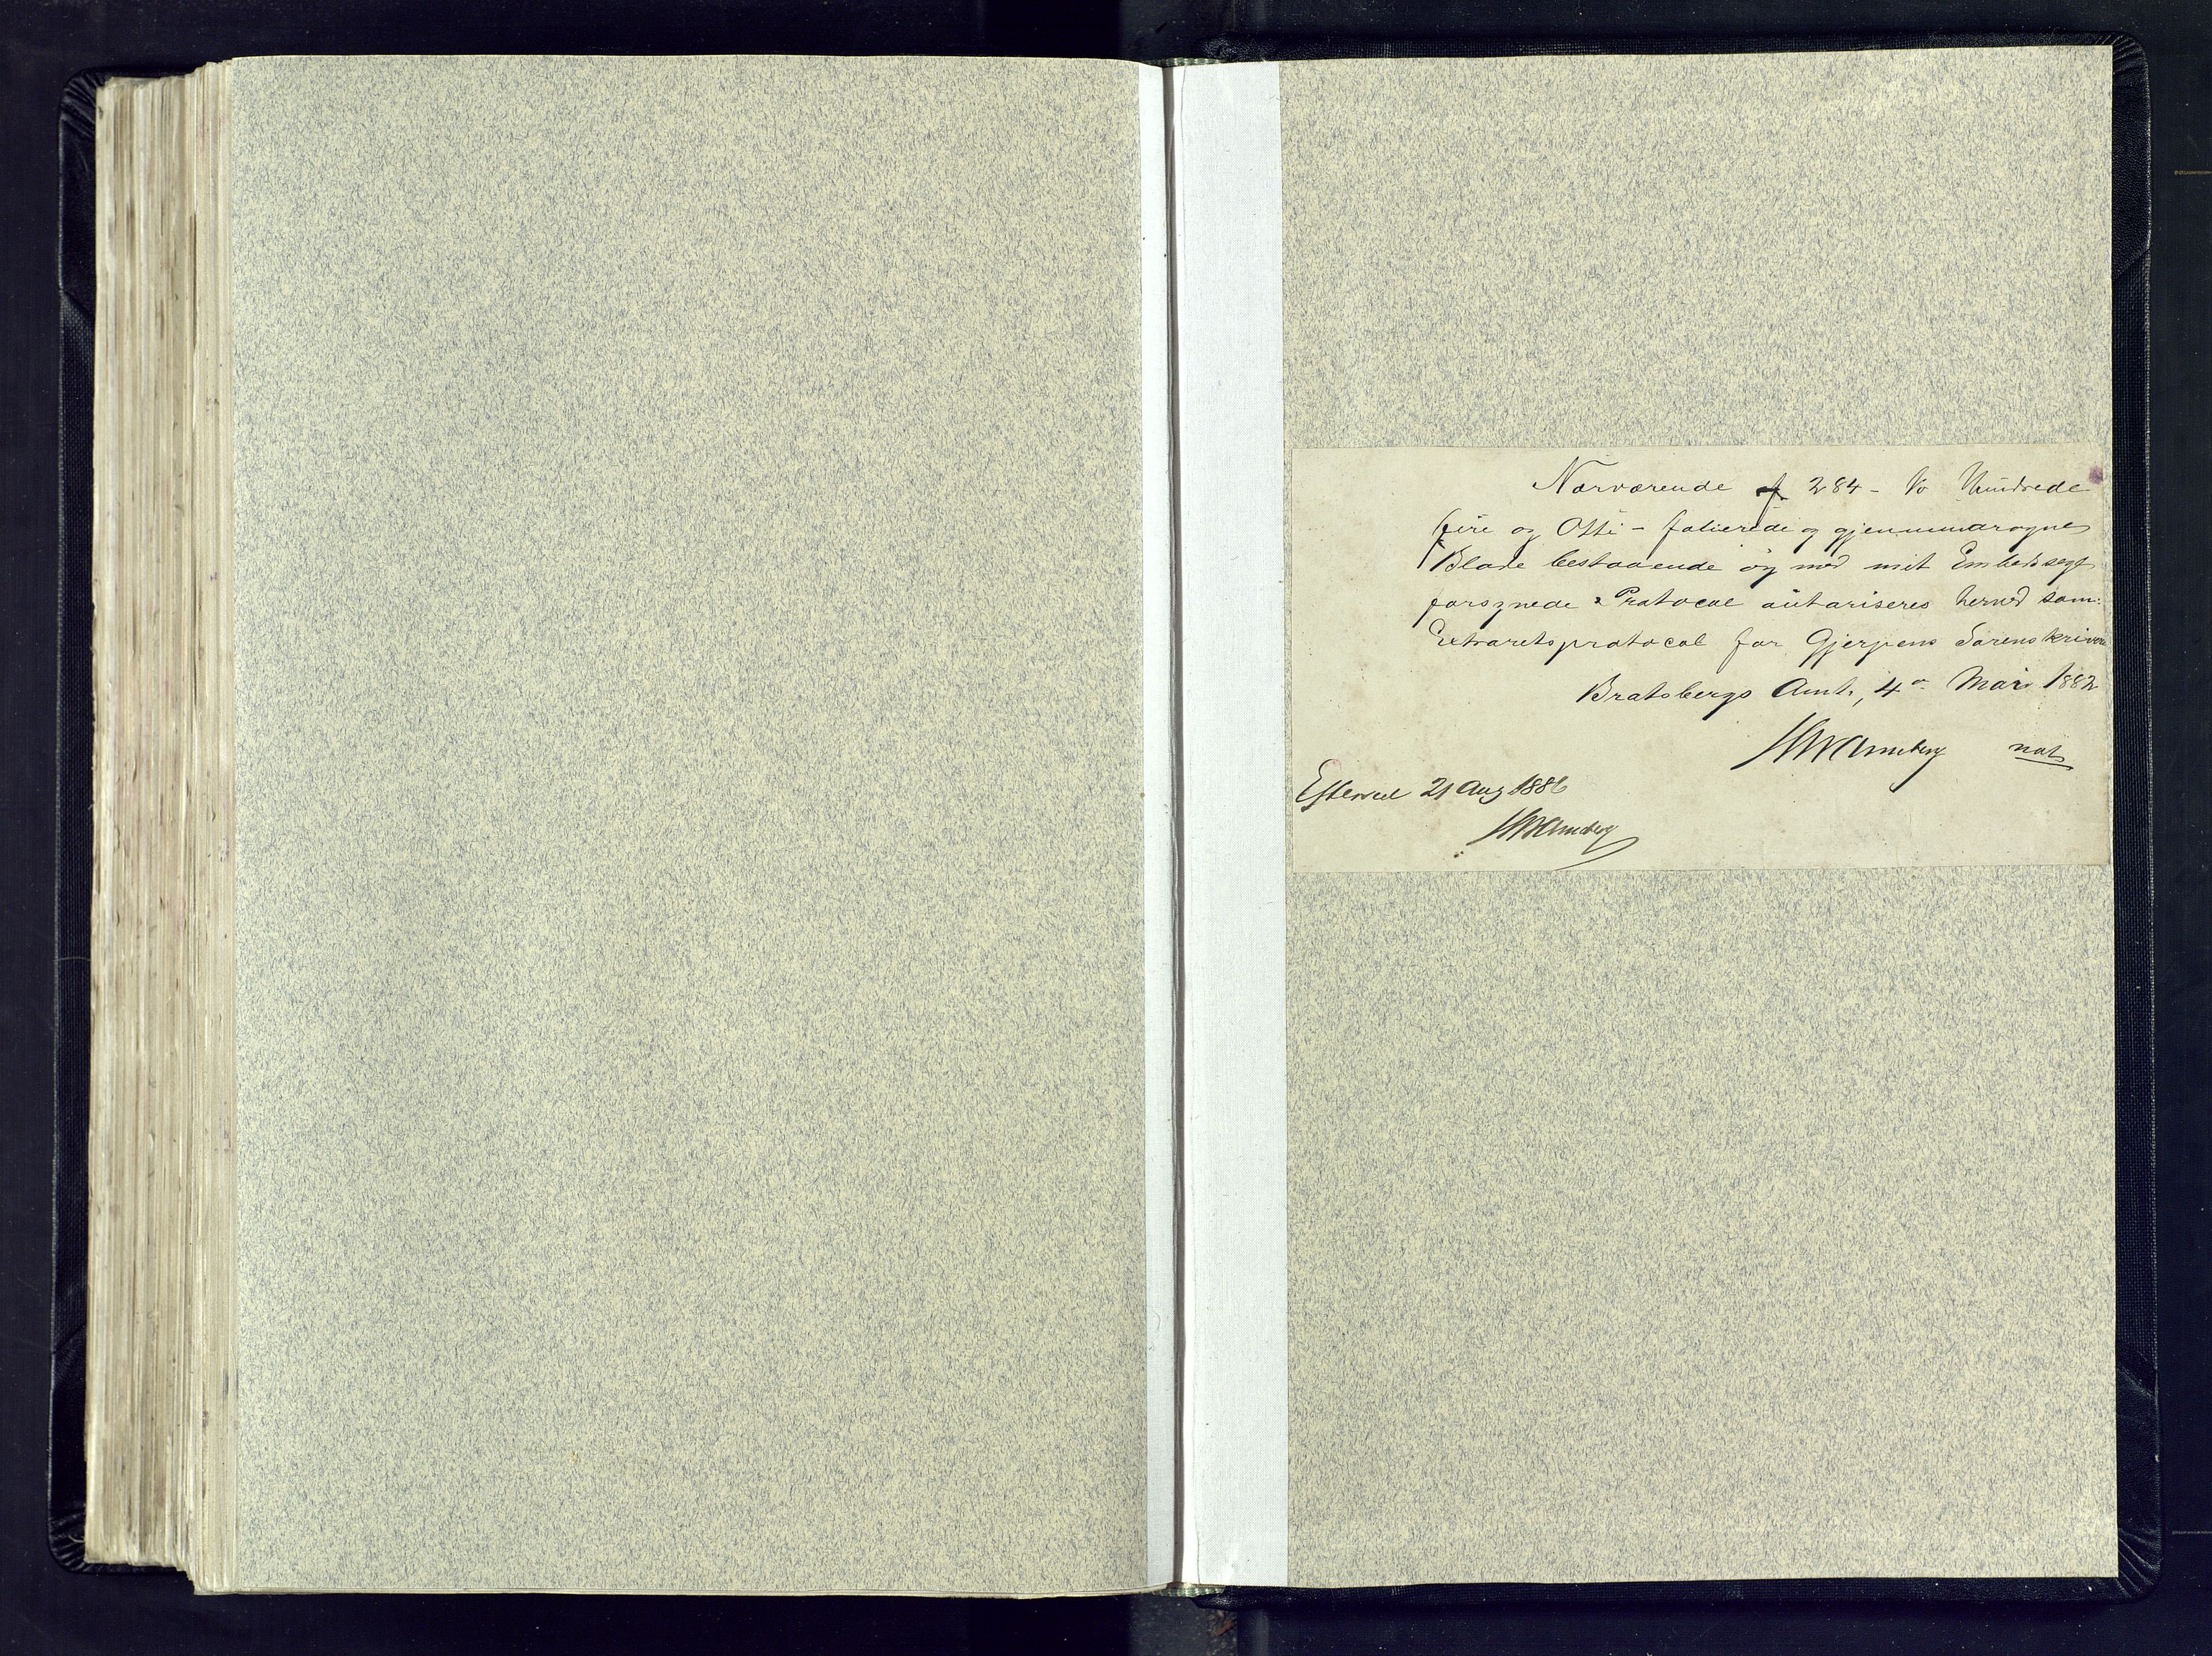 Nærværende af 284 - to Hundrede
fire og Otti - folierede og gjennemdragne
Blade bestaaende og med mit Embedssegl
forsynede Protocol autoriseres herved som
Extraretsprotocol for Gjerpens Sorenskriveri
Bratsbergs Amt, 4de Mai 1882
Efterseet 21 Aug 1886